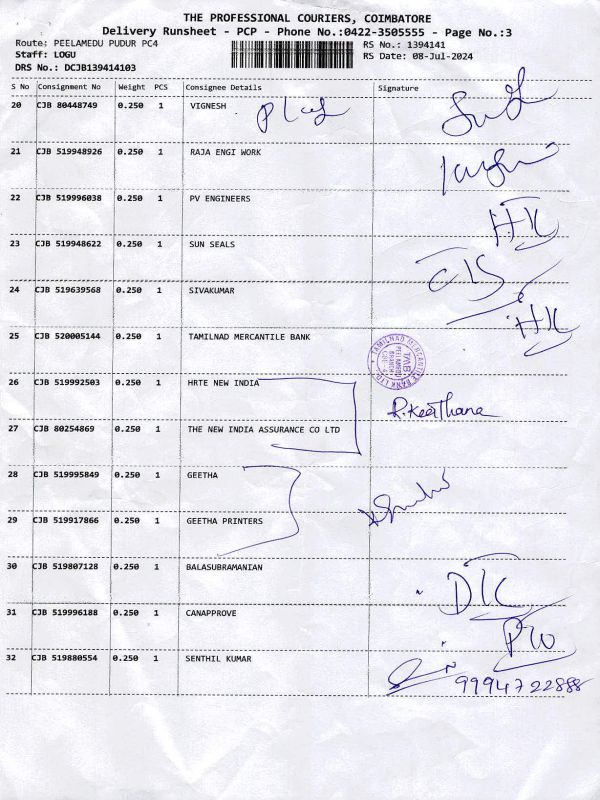 THE PROFESSIONAL COURIERS, COIMBATORE
Delivery Runsheet - PCP - Phone No.:0422-3505555 - Page No.:3
Route: PEELAMEDU PUDUR PC4 RS No.: 1394141
Staff: LOGU RS Date: 08-Jul-2024
DRS No.: DCJB139414103
S No Consignment No Weight PCS Consignee Details Signature
20 CJB 80448749 0.250 1 VIGNESH
21 CJB 519948926 0.250 1 RAJA ENGI WORK
22 CJB 519996038 0.250 1 PV ENGINEERS
23 CJB 519948622 0.250 1 SUN SEALS
24 CJB 519639568 0.250 1 SIVAKUMAR
25 CJB 520005144 0.250 1 TAMILNAD MERCANTILE BANK
TAMILNAD MERCANTILE BANK LTD
26 CJB 519992503 0.250 1 HRTE NEW INDIA
R.Keerthana
27 CJB 80254869 0.250 1 THE NEW INDIA ASSURANCE CO LTD
28 CJB 519995849 0.250 1 GEETHA
29 CJB 519917866 0.250 1 GEETHA PRINTERS
30 CJB 519807128 0.250 1 BALASUBRAMANIAN
31 CJB 519996188 0.250 1 CANAPPROVE
32 CJB 519880554 0.250 1 SENTHIL KUMAR
9994722888